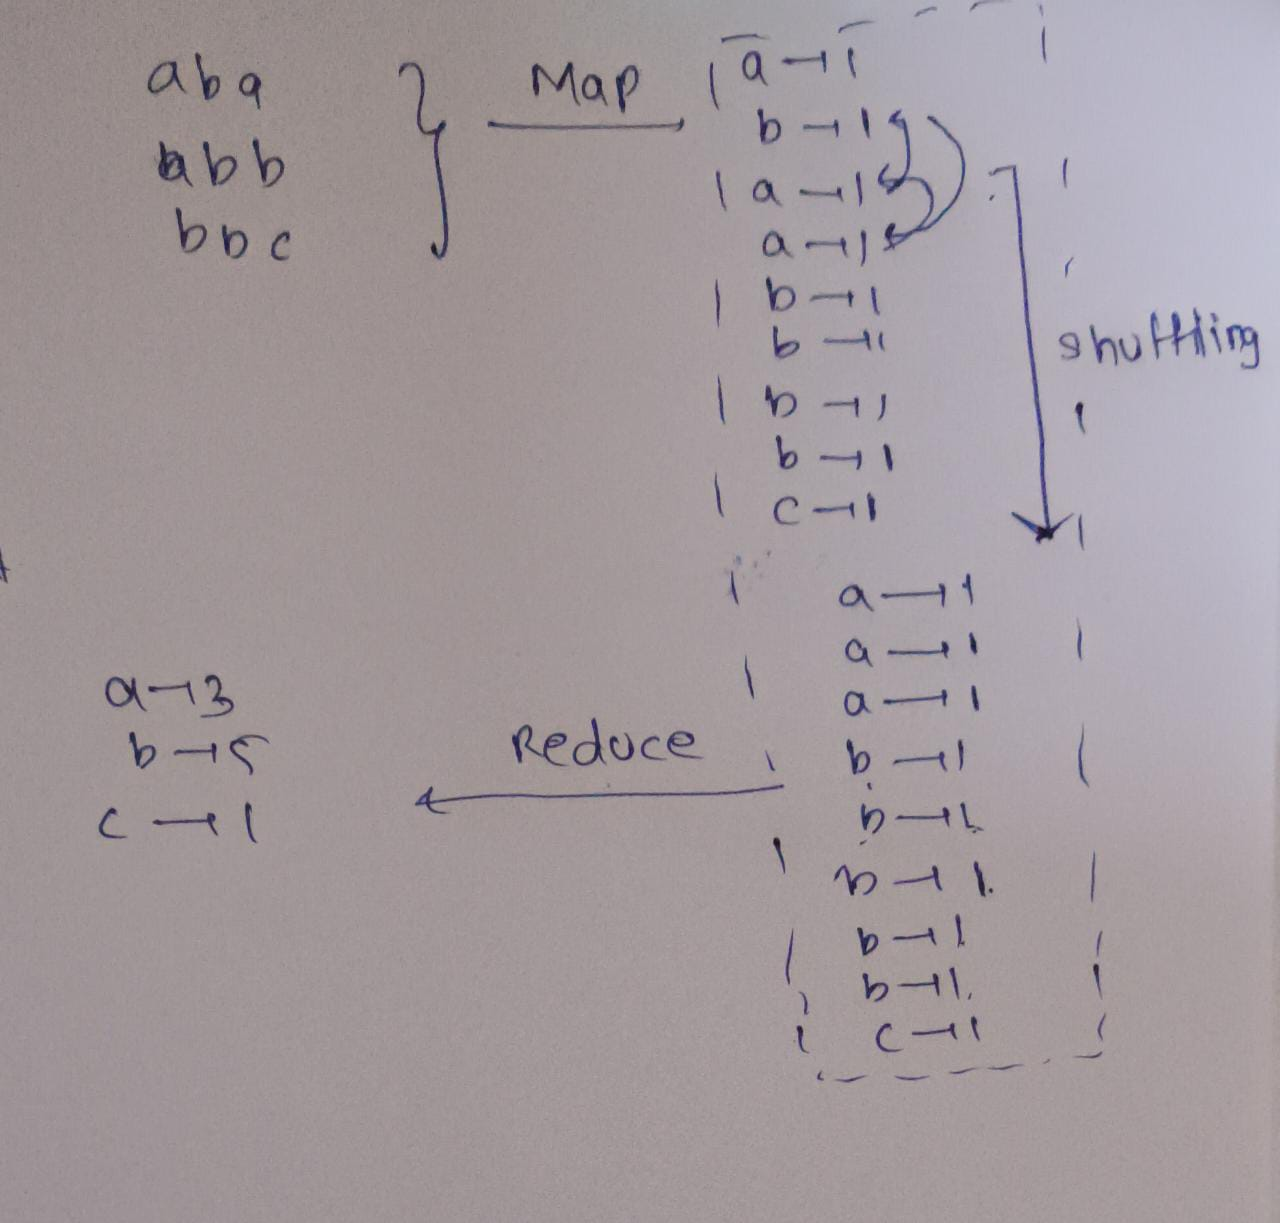 aba
abb
bbc
Map
a → 1
b → 1
a → 1
a → 1
b → 1
b → 1
b → 1
b → 1
c → 1
shuffling
a → 1
a → 1
a → 1
b → 1
b → 1
b → 1
b → 1
b → 1
c → 1
Reduce
a → 3
b → 5
c → 1